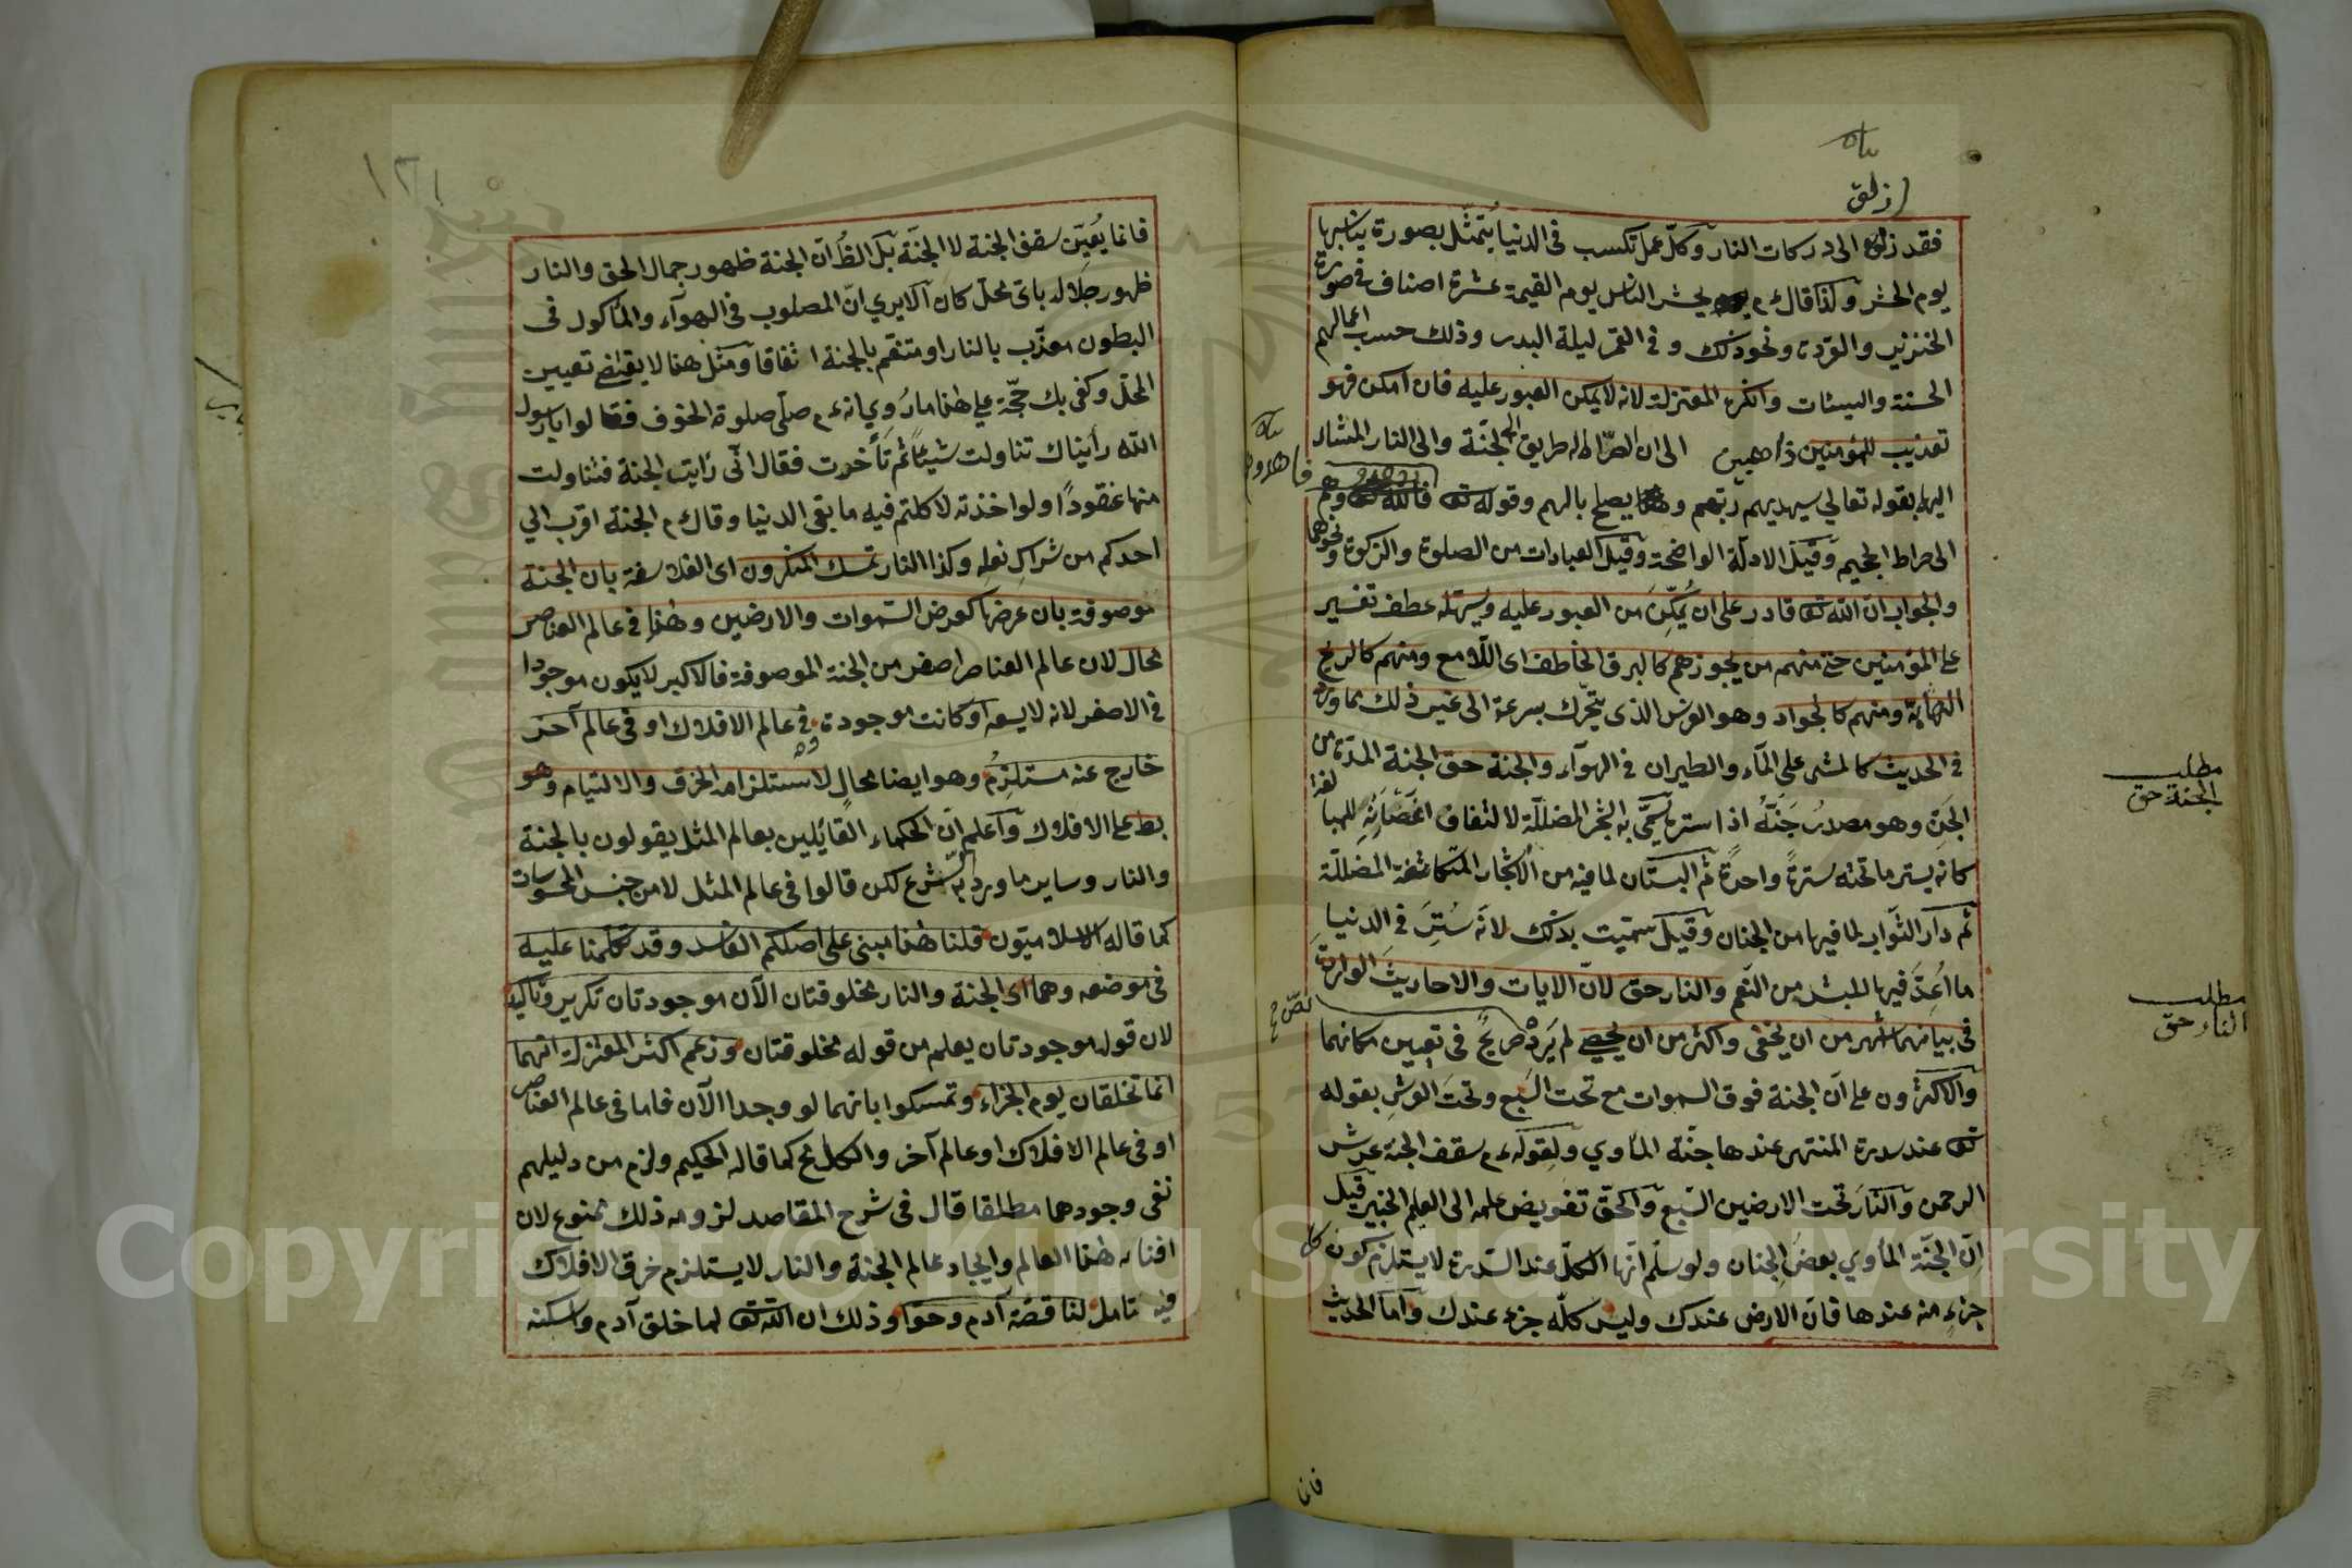 ازلق
فقد زلق الى دركات النار وكل عمل تكسب فى الدنيا يتمثل بصورة يناسبها
يوم الحشر ولذا قال ءم يحشر الناس يوم القيمة عشرة اصناف فى صورة
الخنزير والقردة ونحو ذلك و فى القمر ليلة البدر وذلك حسب اعمالهم
الحسنة والسيئات وانكره المعتزلة لانه لا يمكن العبور عليه فان امكن فهو
تعذيب للمؤمنين ذاهبين الى ان الصراط طريق الجنة والى النار المشار
اليها بقوله تعالي سيهديهم ربهم و يصلح بالهم وقوله تع فاهدوهم
الى صراط الجحيم وقيل الادلة الواضحة وقيل العبادات من الصلوة والزكوة ونحوهما
والجواب ان الله تع قادر على ان يمكن من العبور عليه ويسهله عطف تفسير
على المؤمنين حتى منهم من يجوز هم كالبرق الخاطف اى اللامع ومنهم كالريح
الهابة ومنهم كالجواد وهو الفرس الذى يتحرك بسرعة الى غير ذلك مما ورد
فى الحديث كالمشى على المآء والطيران فى الهوآء والجنة حق الجنة المرة من
الجن وهو مصدر جنه اذا ستره سمى به الشجر المظللة لالتفاف اغصانه للمبالغة
كانه يستر ما تحته سترة واحدة ثم البستان لما فيه من الاشجار المتكاثفة المظللة
ثم دار الثواب لما فيها من الجنان وقيل سميت بذلك لانه ستر فى الدنيا
ما اعد فيها للبشر من النعم والنار حق لان الايات والاحاديث الواردة
فى بيانهما اشهر من ان يخفى واكثر من ان يحصى لم يرد نص صريح فى تعيين مكانهما
والاكثرون على ان الجنة فوق السموات السبع وتحت العرش بقوله
تع عند سدرة المنتهى عندها جنة المأوي ولقوله ءم سقف الجنة عرش
الرحمن والنار تحت الارضين السبع والحق تفويض علمه الى العليم الخبير قيل
ان الجنة المأوي بعض الجنان ولو سلم انها الكل عند السدرة لا يستلزم كون كل
جزء منه عندها فان الارض عندك وليس كله جزء عندك واما الحديث
فانما
مطلب
الجنة حق
مطلب
النار حق
١٢١
فانما يعين سقف الجنة لا الجنة بل الظ ان الجنة ظهور جمال الحق والنار
ظهور جلاله باى محل كان الا يري ان المصلوب فى الهوآء والمأكول فى
البطون معذب بالنار او متنعم بالجنة اتفاقا ومثل هذا لا يقتضى تعيين
المحل وكفى بك حجة على هذا ما روي انه ءم صلى صلوة الخوف فقالوا يا رسول
الله رأيناك تناولت شيئا ثم تأخرت فقال انى رايت الجنة فتناولت
منها عنقودا ولو اخذته لاكلتم فيه ما بقى الدنيا وقال ءم الجنة اقرب الي
احدكم من شراك نعله وكذا النار تمسك المنكرون اى الفلاسفة بان الجنة
موصوفة بان عرضها كعرض السموات والارضين وهذا فى عالم العناصر
محال لان عالم العناصر اصغر من الجنة الموصوفة فالاكبر لا يكون موجودا
فى الاصغر لانه لا يسعه او كانت موجودة فى عالم الافلاك او فى عالم آخر
خارج عنه مستلزم وهو ايضا محال لاستلزامه الخرق والالتيام وهو
بط على الافلاك واعلم ان الحكماء القائلين بعالم المثل يقولون بالجنة
والنار وساير ما ورد به الشرع لكن قالوا فى عالم المثل لا من جنس المحسوسات
كما قاله الاسلاميون قلنا هذا مبنى على اصلكم الفاسد وقد تكلمنا عليه
فى موضعه وهما اى الجنة والنار مخلوقتان الآن موجودتان تكرير وتأكيد
لان قوله موجودتان يعلم من قوله مخلوقتان وزعم اكثر المعتزلة انهما
انما تخلقان يوم الجزاء وتمسكوا بانهما لو وجدا الآن فاما فى عالم العناصر
او فى عالم الافلاك او عالم آخر والكل مح كما قاله الحكيم ولزم من دليلهم
نفى وجودهما مطلقا قال فى شرح المقاصد لزومه ذلك ممنوع لان
افناء هذا العالم وايجاد عالم الجنة والنار لا يستلزم خرق الافلاك
فيه تامل لنا قصة آدم وحوا وذلك ان الله تع لما خلق آدم واسكنه
Copyright © King Saud University